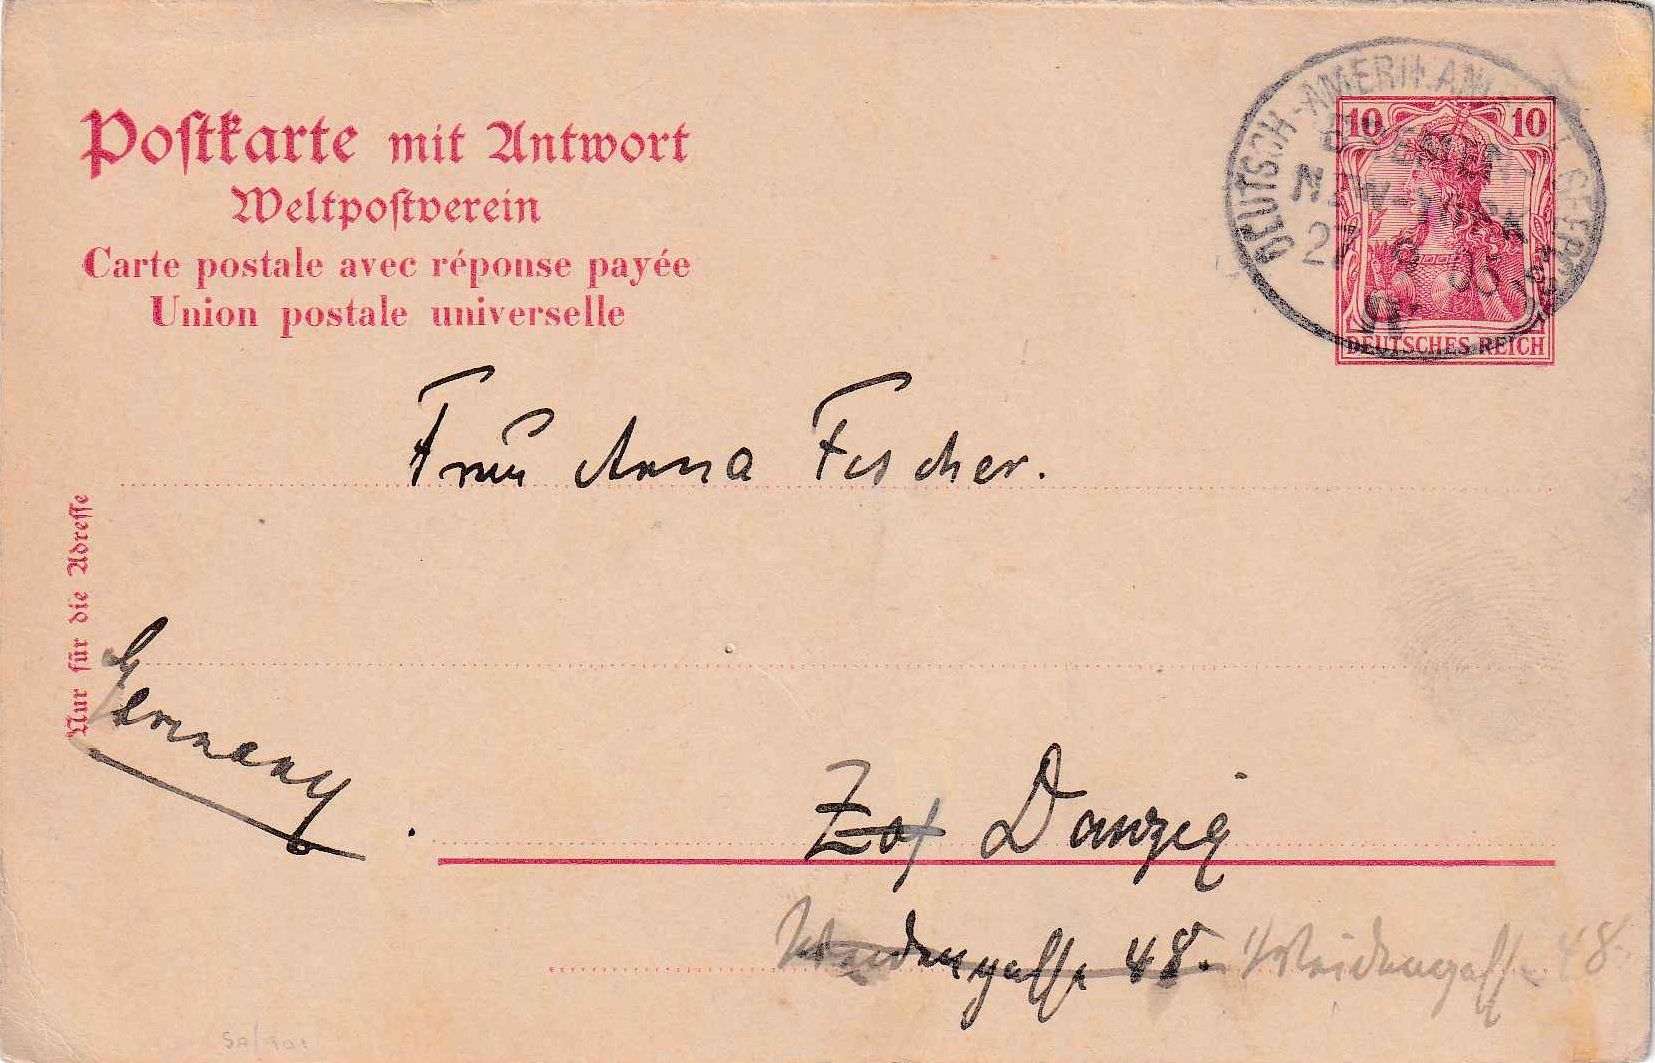 Postkarte mit Antwort
Weltpostverein
Carte postale avec réponse payée
Union postale universelle
DEUTSCH-AMERIKAN. SEEPOST
BREMEN-
NEW-YORK
27 6 06
10 10
DEUTSCHES REICH
Nur für die Adresse
Frau Anna Fischer.
Germany
Danzig
Weidengasse 48.
Weidengasse 48.